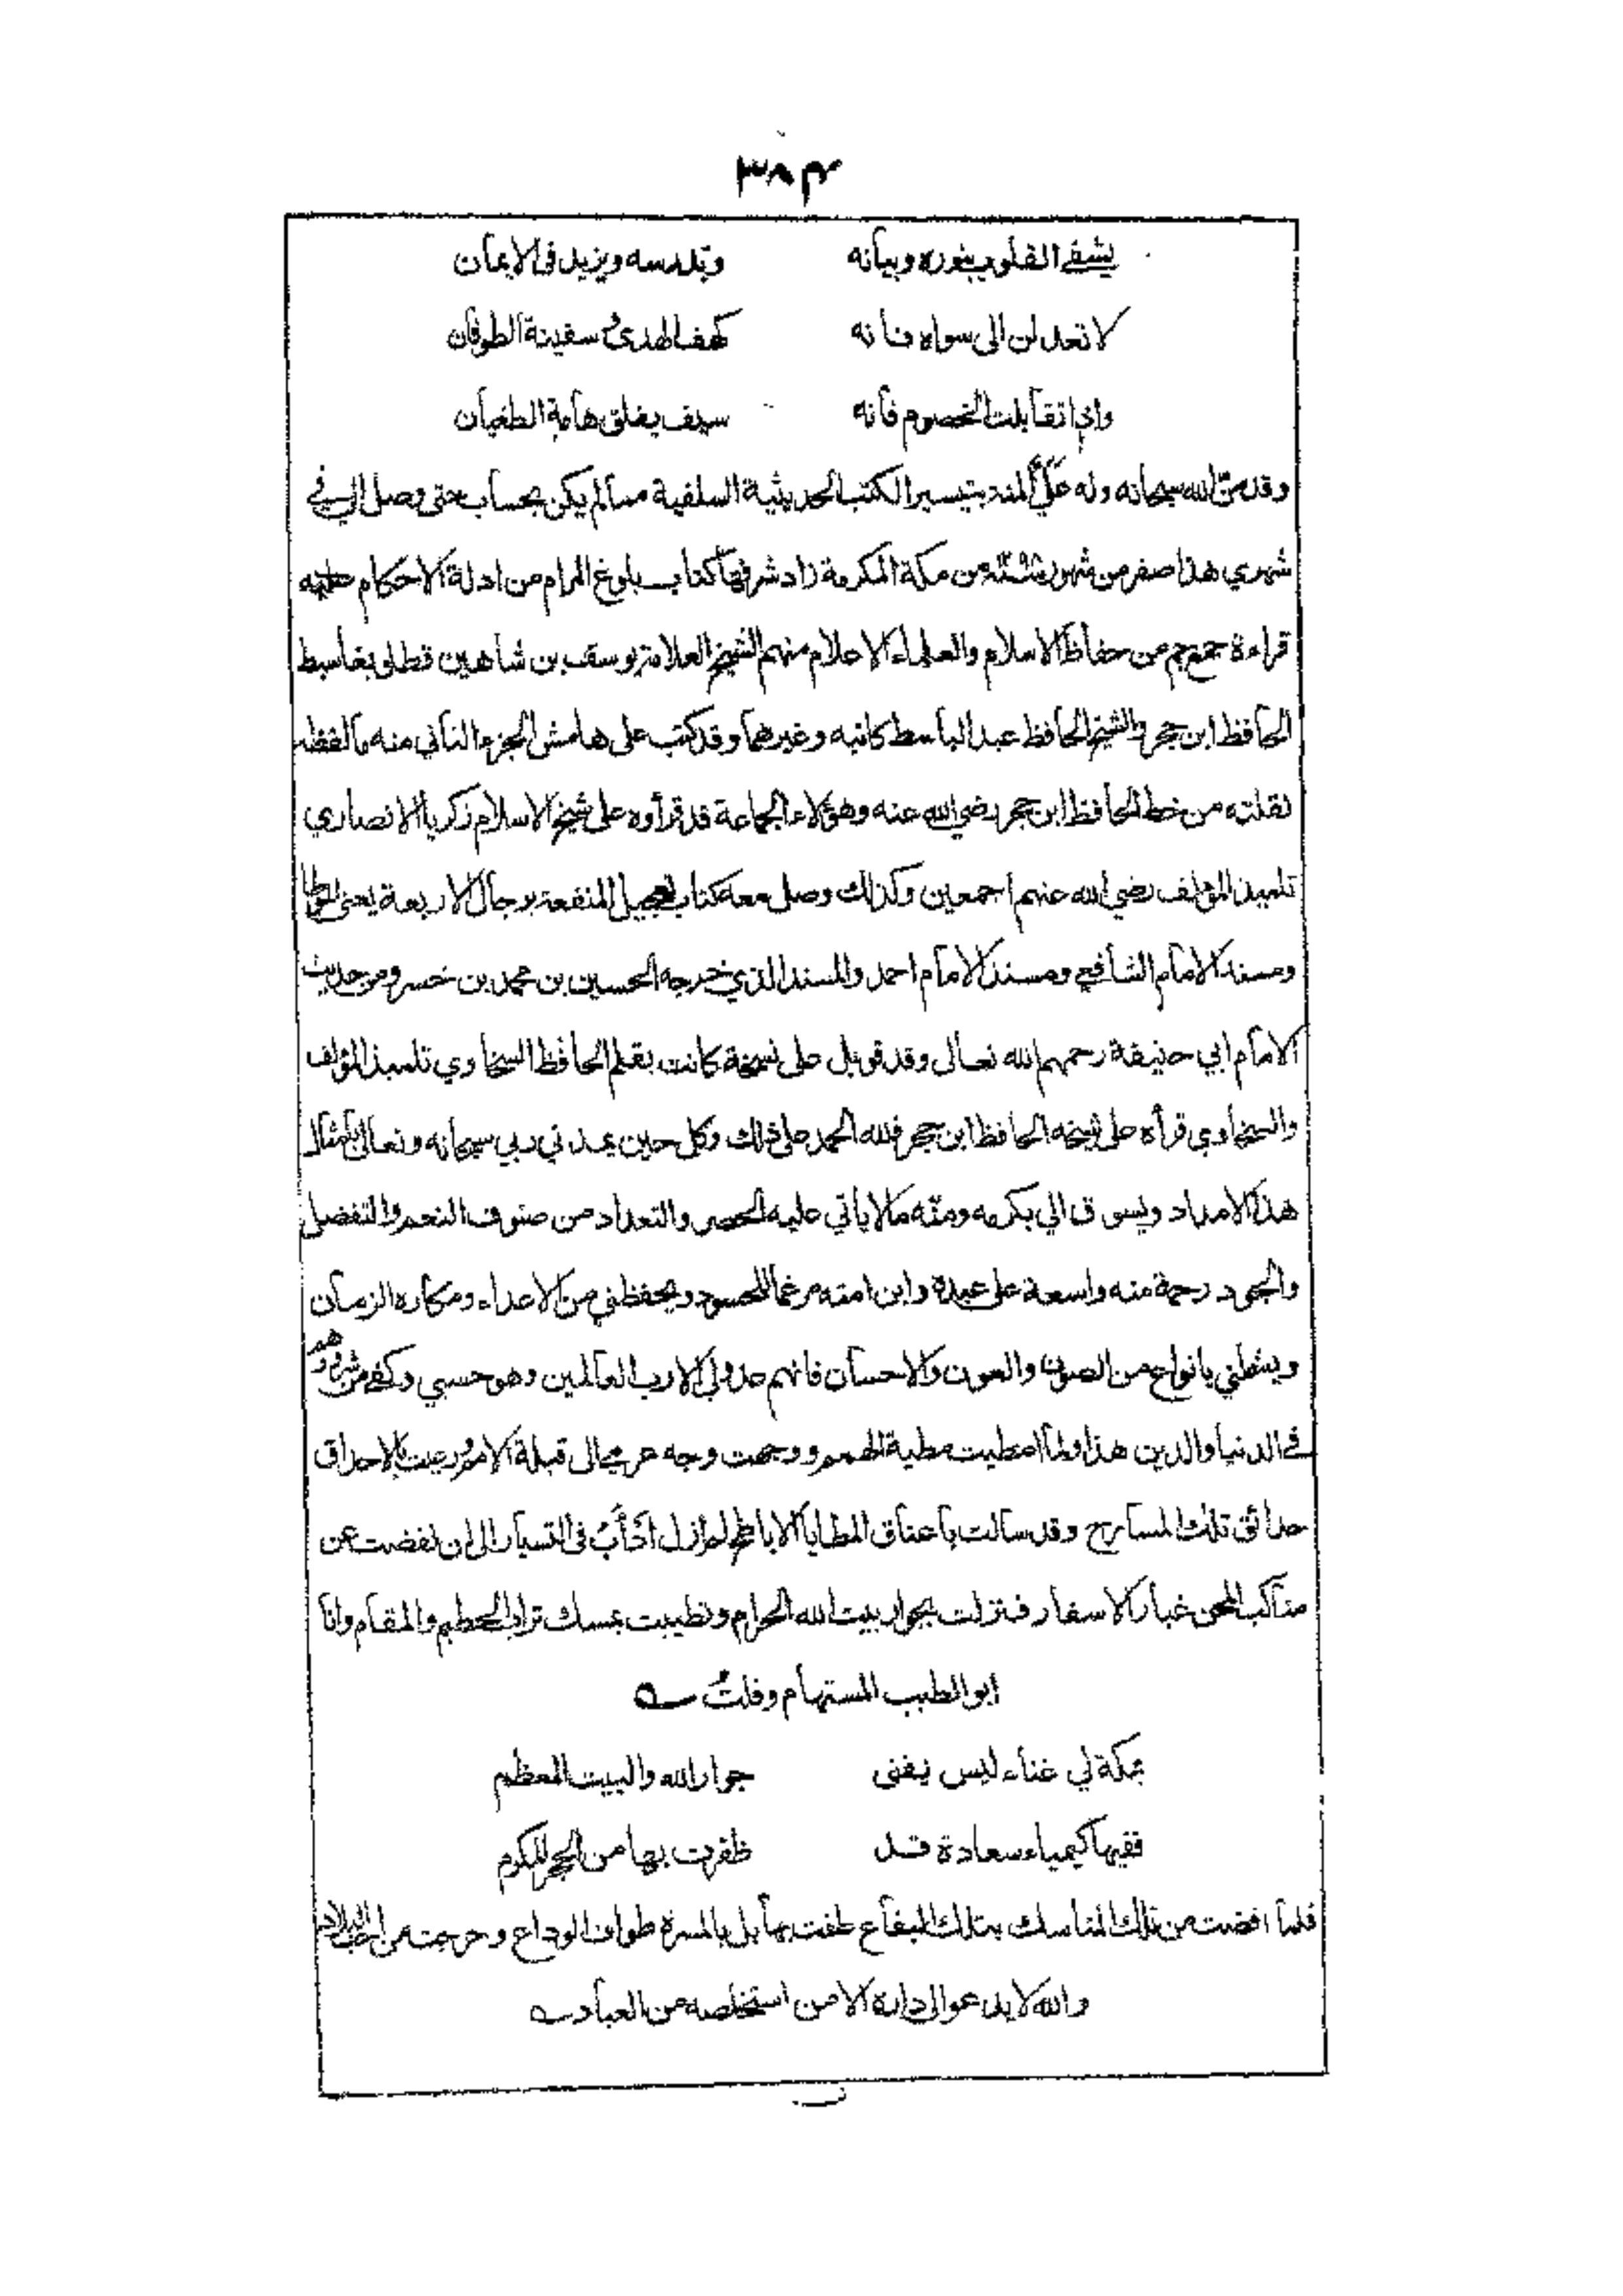 ٣٨٣
يشفي القلوب بنوره وبيانه وتدرسه ويزيد في الايمان
لا تعدلن الى سواه فانه كهف الهدى سفينة الطوفان
واذا تقابلت الخصوم فانه سيف يفلق هامة الطغيان
وقد من الله سبحانه وله علي المنة بتيسير الكتب الحديثية السلفية مما لم يكن بحساب حتى وصل الي في
شهري هذا صفر من شهور من مكة المكرمة زاد شرفها كتاب بلوغ المرام من ادلة الاحكام عليه
قراءة جمع جم من حفاظ الاسلام والعلماء الاعلام منهم الشيخ العلامة يوسف بن شاهين قطلوبغا سبط
الحافظ ابن حجر والشيخ الحافظ عبد الباسط كاتبه وغيرهما وقد كتب على هامش الجزء الثاني منه ما لفظه
نقلته من خط الحافظ ابن حجر رضي الله عنه وهؤلاء الجماعة قد قرأوه على شيخ الاسلام زكريا الانصاري
تلميذ المؤلف رضي الله عنهم اجمعين وكذلك وصل معه كتاب تعجيل المنفعة برجال الاربعة يعني الموطا
ومسند الامام الشافعي ومسند الامام احمد والمسند الذي خرجه الحسين بن محمد بن خسرو من حديث
الامام ابي حنيفة رحمهم الله تعالى وقد قوبل على نسخة كانت بقلم الحافظ السخاوي تلميذ المؤلف
والسخاوي قرأه على شيخه الحافظ ابن حجر فلله الحمد على ذلك وكل حين يمدني ربي سبحانه وتعالى بامثال
هذا الامداد ويسوق الي بكرمه ومنه ما لا يأتي عليه الحصر والتعداد من صنوف النعم والتفضل
والجود رحمة منه واسعة على عبده وابن امته مرغما للحسود ويحفظني من الاعداء ومكاره الزمان
ويشملني بانواع من الصون والعون والاحسان فانهم عدو لي الا رب العالمين وهو حسبي وكفى من شرورهم
في الدنيا والدين هذا ولما امطيت مطية الهمم ووجهت وجه عزمي الى قبلة الامم ورعيت بالاحداق
حدائق تلك المسارح وقد سالت باعناق المطايا الاباطح لم ازل ادأب في التسيار الى ان نفضت عن
مناكب المحن غبار الاسفار فنزلت بجوار بيت الله الحرام وتطيبت بمسك تراب الحطيم والمقام وانا
ابو الطيب المستهام وقلت
بمكة لي غناء ليس يفنى جوار الله والبيت المعظم
ففيها كيمياء سعادة قد ظفرت بها من الحجر المكرم
فلما افضت من تلك المناسك بتلك البقاع طفت بها بل بالمسرة طواف الوداع وخرجت من احب البلاد
والله لا يدعو الى داره الا من استخلصه من العباد